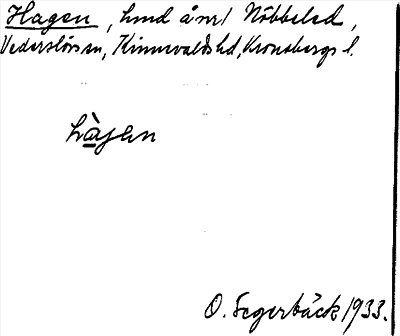 Hagen, hmd å nr 1 Nöbbeled,
Vederslövs sn, Kinnevalds hd, Kronobergs l.
hàgen
O. Segerbäck 1933.